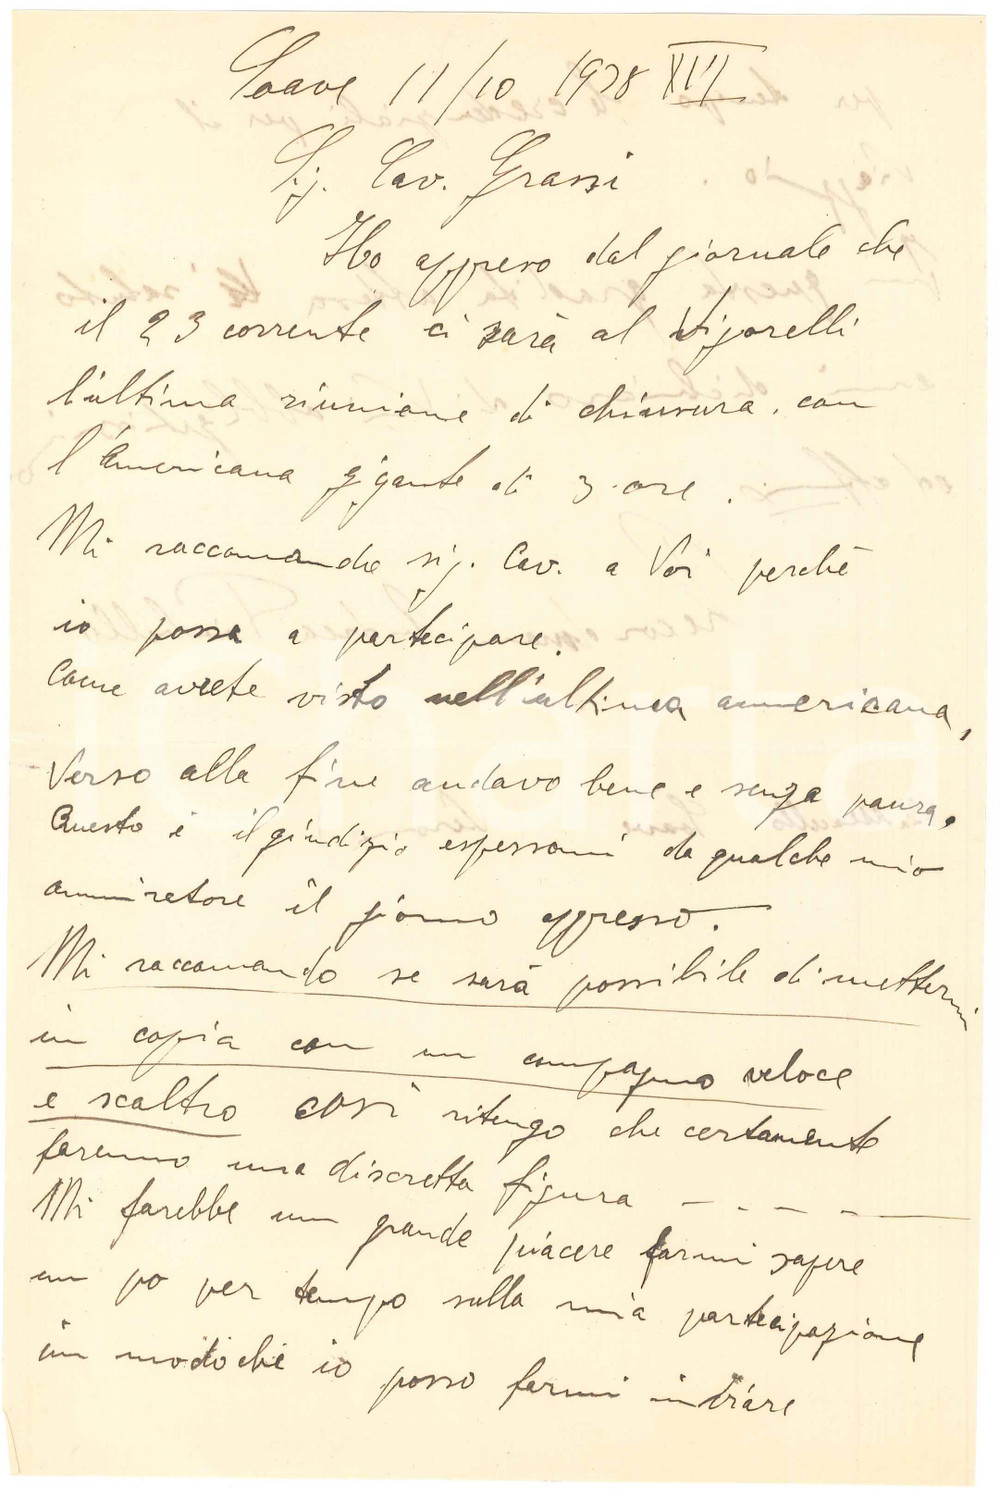 Soave 11/10 1938 XVI
Sig. Cav. Grassi
Ho appreso dal giornale che
il 23 corrente ci sarà al Vigorelli
l'ultima riunione di chiusura. con
l'americana gigante di 3 ore.
Mi raccomando sig. Cav. a Voi perchè
io possa a partecipare.
Come avrete visto nell'ultima americana,
Verso alla fine andavo bene e senza paura.
Questo è il giudizio espessomi da qualche mio
ammiratore il giorno appresso.
Mi raccomando se sarà possibile di mettermi
in copia con un compagno veloce
e scaltro così ritengo che certamente
faremmo una discretta figura
Mi farebbe un grande piacere farmi sapere
un po per tempo sulla mia partecipazione
in modo che io posso farmi inviare